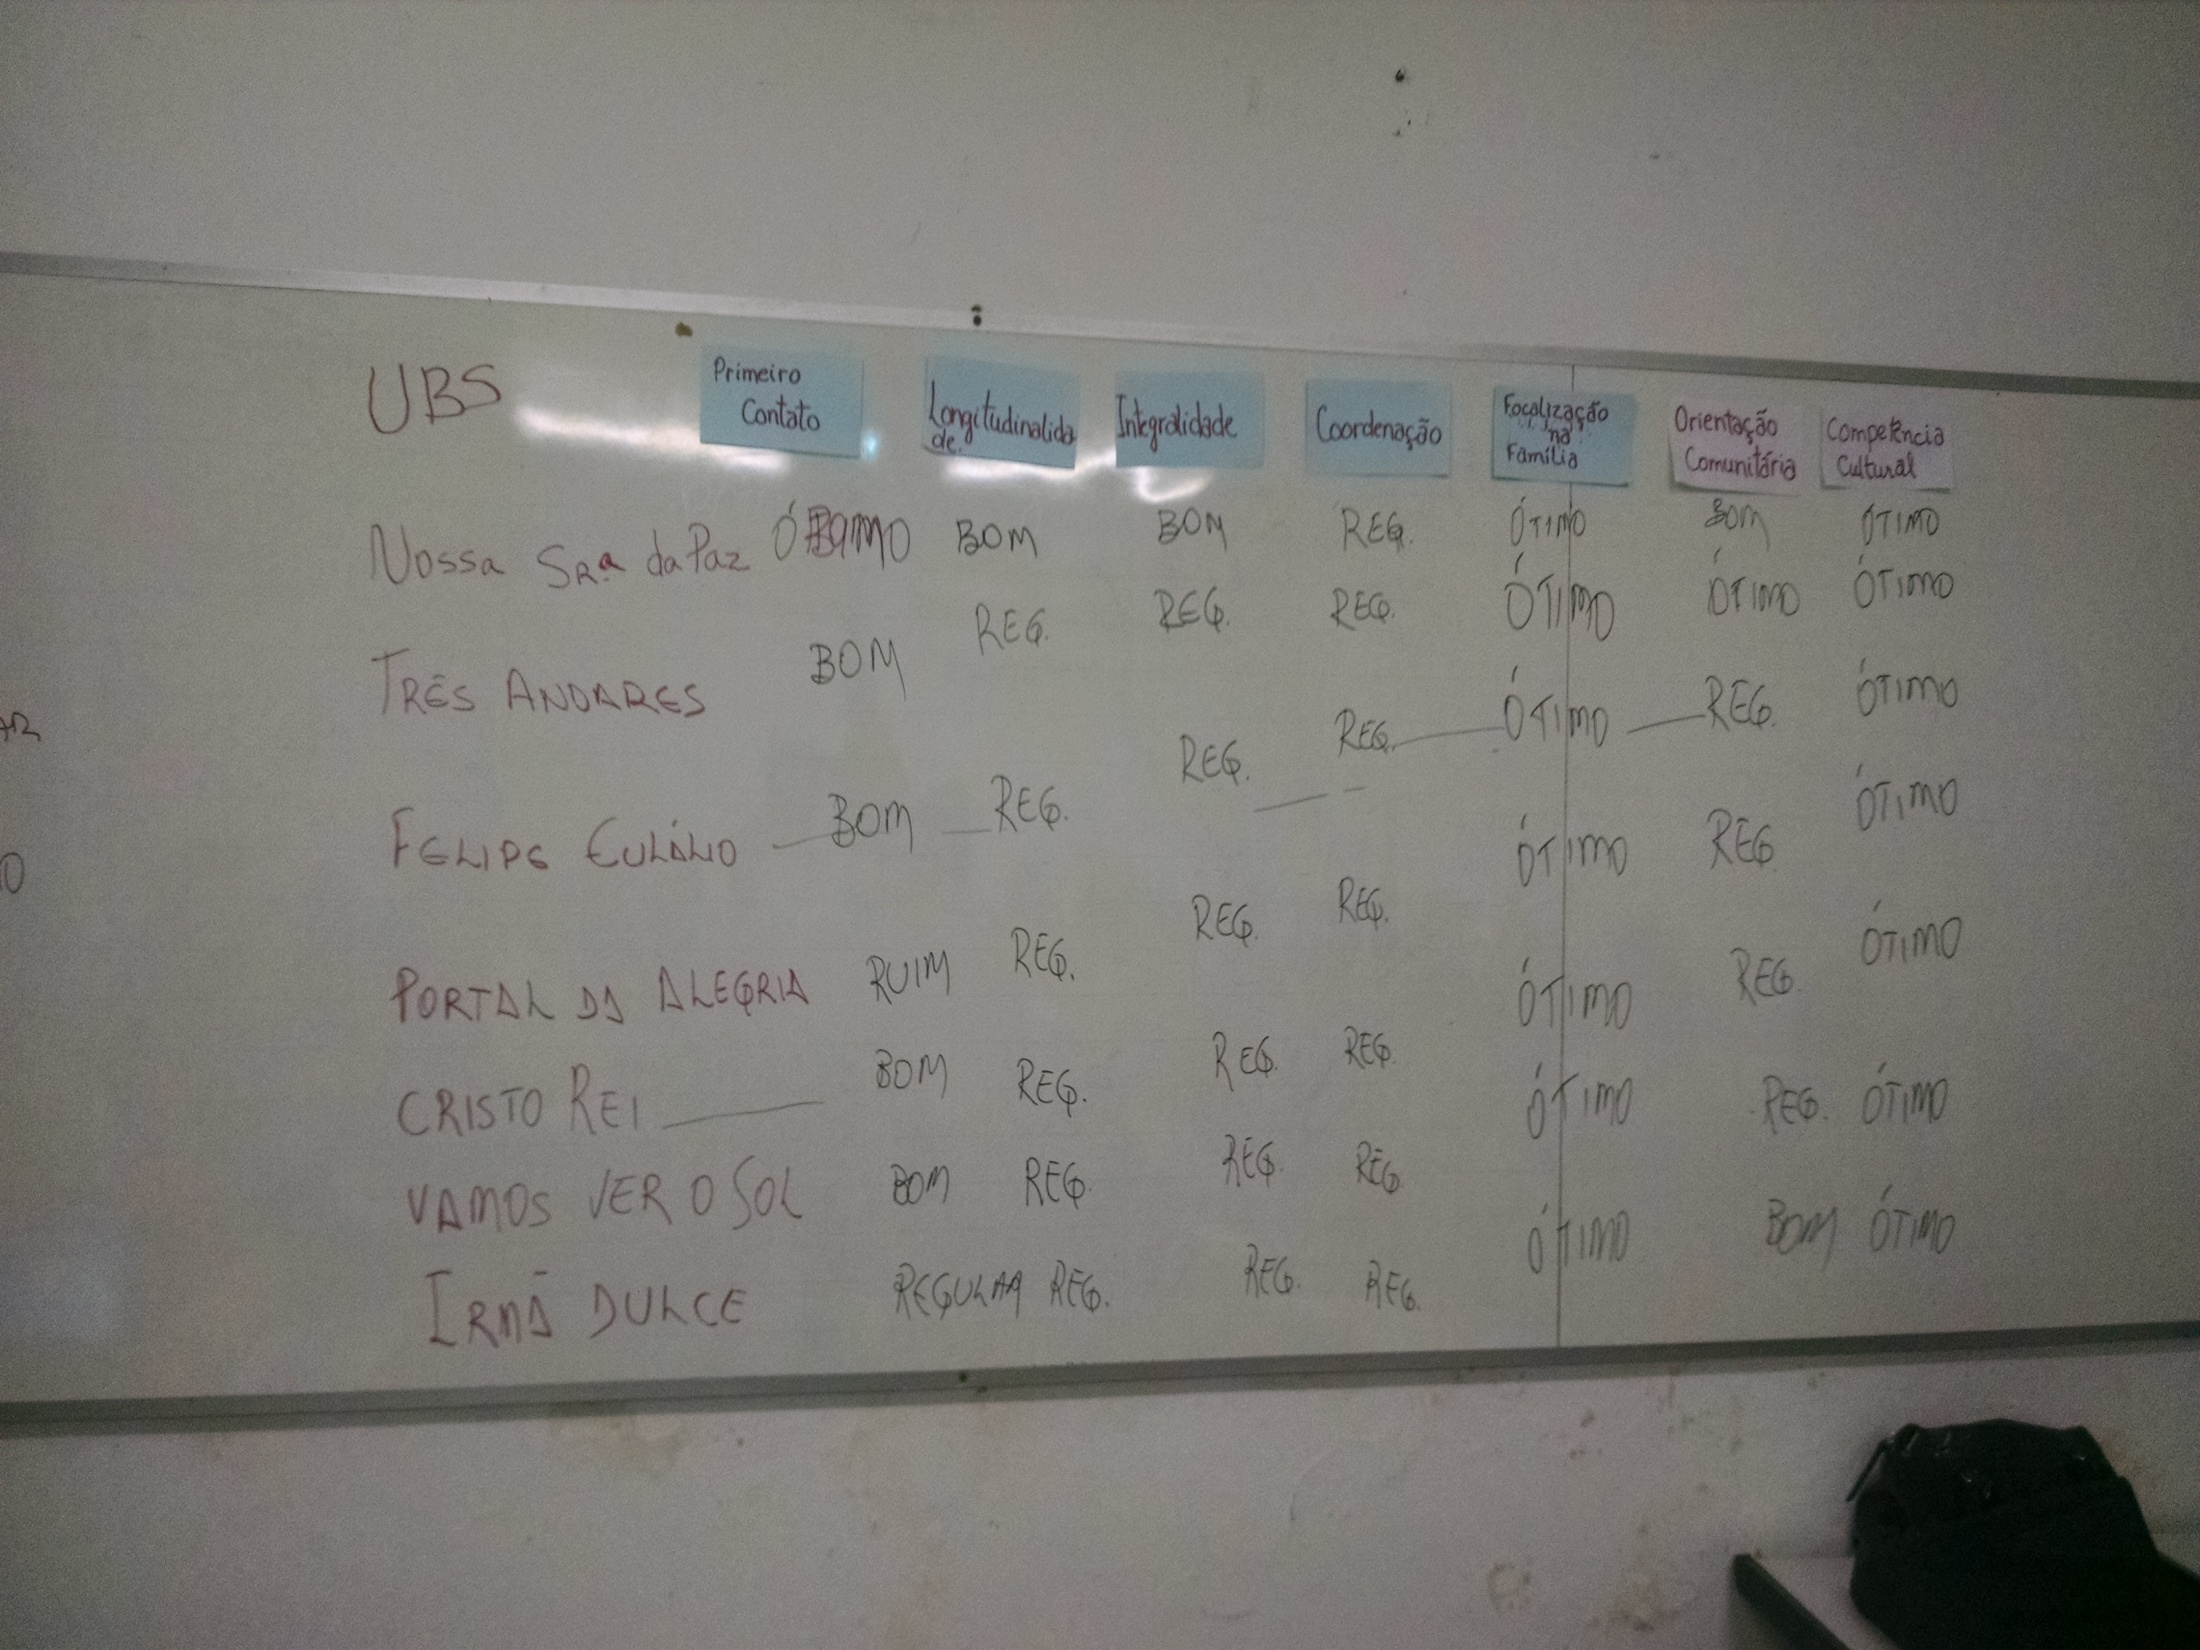 UBS Primeiro Contato Longitudinalidade. Integralidade Coordenação Focalização na Família Orientação Comunitária Competência Cultural
Nossa Srª da Paz BOM BOM REG. ÓTIMO BOM ÓTIMO
TRÊS ANDARES BOM REG. REG. REG. ÓTIMO ÓTIMO ÓTIMO
FELIPE EULÁLIO BOM REG. REG. REG. ÓTIMO REG. ÓTIMO
PORTAL DA ALEGRIA RUIM REG. REG. REG. ÓTIMO REG ÓTIMO
CRISTO REI BOM REG. REG. REG. ÓTIMO REG. ÓTIMO
VAMOS VER O SOL BOM REG. REG. REG. ÓTIMO REG. ÓTIMO
IRMÃ DULCE REGULAR REG. REG. REG. ÓTIMO BOM ÓTIMO